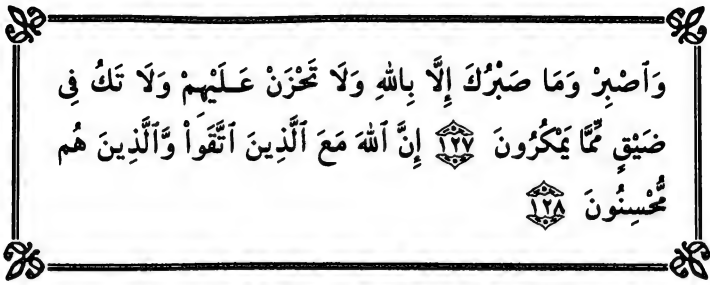 وَٱصْبِرْ وَمَا صَبْرُكَ إِلَّا بِٱللَّهِ وَلَا تَحْزَنْ عَلَيْهِمْ وَلَا تَكُ فِى
ضَيْقٍ مِّمَّا يَمْكُرُونَ ١٢٧ إِنَّ ٱللَّهَ مَعَ ٱلَّذِينَ ٱتَّقَوا۟ وَّٱلَّذِينَ هُم
مُّحْسِنُونَ ١٢٨